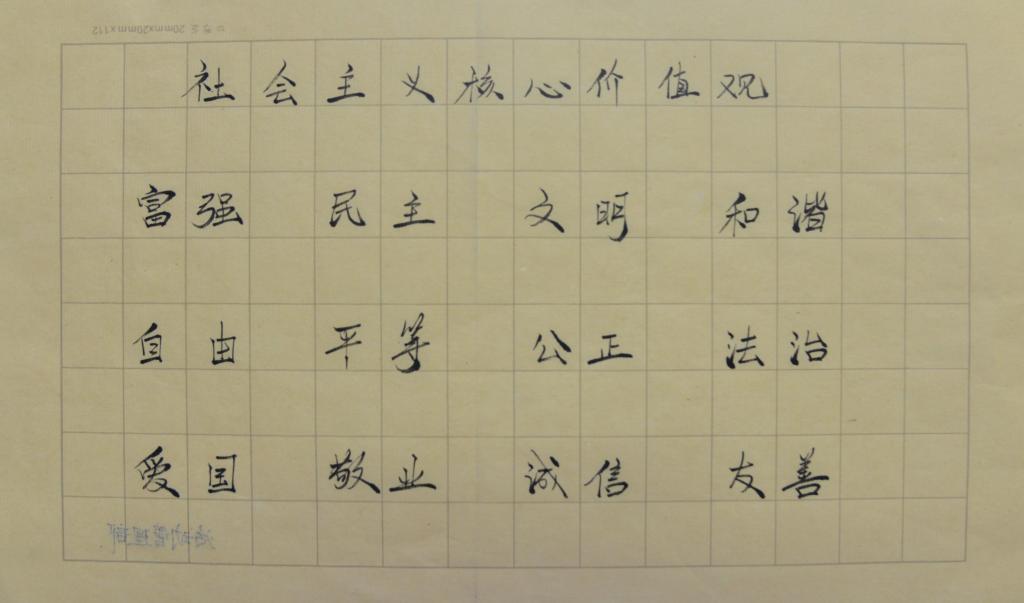 社会主义核心价值观
富强 民主 文明 和谐
自由 平等 公正 法治
爱国 敬业 诚信 友善